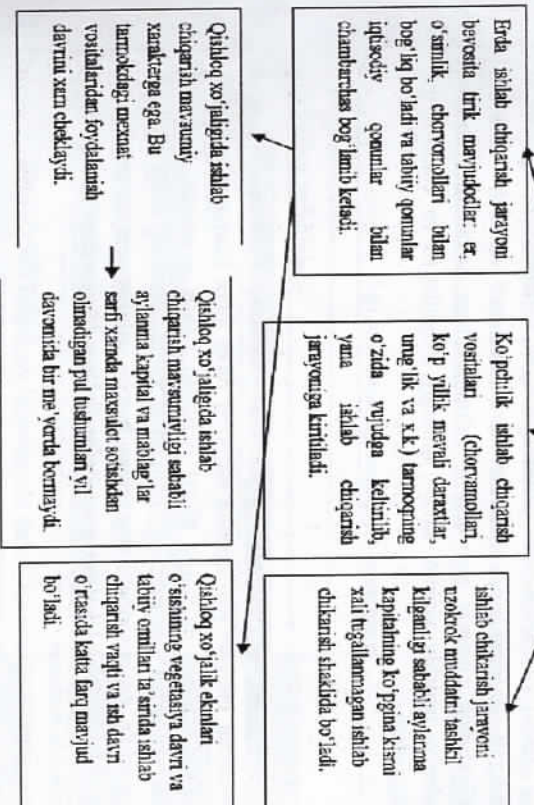 Erda ishlab chiqarish jarayoni
bevosita tirik mavjudodlar: er,
o'simlik, chorvomollari bilan
bog'liq bo'ladi va tabiiy qonunlar
iqtisodiy qonunlar bilan
chambarchas bog'lanib ketadi.
Ko'pchilik ishlab chiqarish
vositalari (chorvamollari,
ko'p yillik mevali daraxtlar,
urug'lik va x.k.) tarmoqning
o'zida vujudga keltirilib,
yana ishlab chiqarish
jarayoniga kiritiladi.
ishlab chikarish jarayoni
uzokrok muddatni tashkil
kilganligi sababli aylanma
kapitalning ko'pgina kismi
xali tugallanmagan ishlab
chikarish shaklida bo'ladi.
Qishloq xo'jaligida ishlab
chiqarish mavsumiy
xarakterga ega. Bu
tarmokdagi mexnat
vositalaridan foydalanish
davrini xam cheklaydi.
Qishloq xo'jaligida ishlab
chiqarish mavsumiyligi sababli
aylanma kapital va mablag'lar
sarfi xamda maxsulot sotishdan
olinadigan pul tushumlari yil
davomida bir me'yorda bormaydi.
Qishloq xo'jalik ekinlari
o'sishining vegetasiya davri va
tabiiy omillari ta'sirida ishlab
chiqarish vaqti va ish davri
o'rtasida katta farq mavjud
bo'ladi.